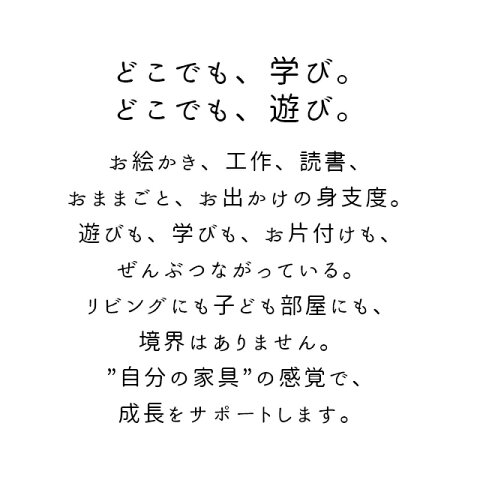 どこでも、学び。
どこでも、遊び。
お絵かき、工作、読書、
おままごと、お出かけの身支度。
遊びも、学びも、お片付けも、
ぜんぶつながっている。
リビングにも子ども部屋にも、
境界はありません。
”自分の家具”の感覚で、
成長をサポートします。